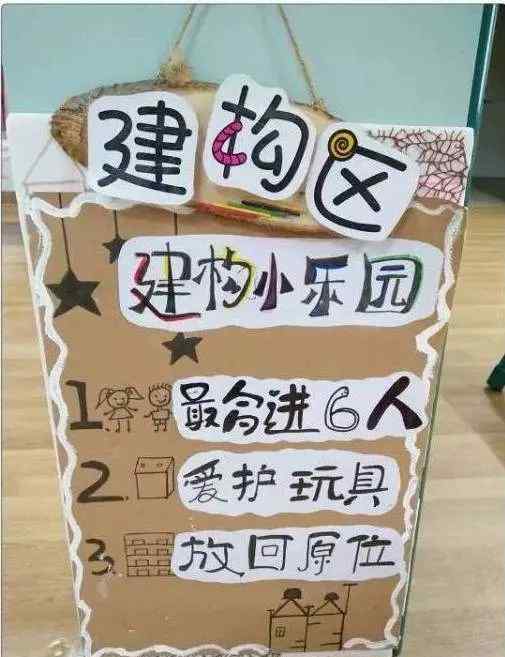 建构区
建构小乐园
1. 最多进6人
2. 爱护玩具
3. 放回原位